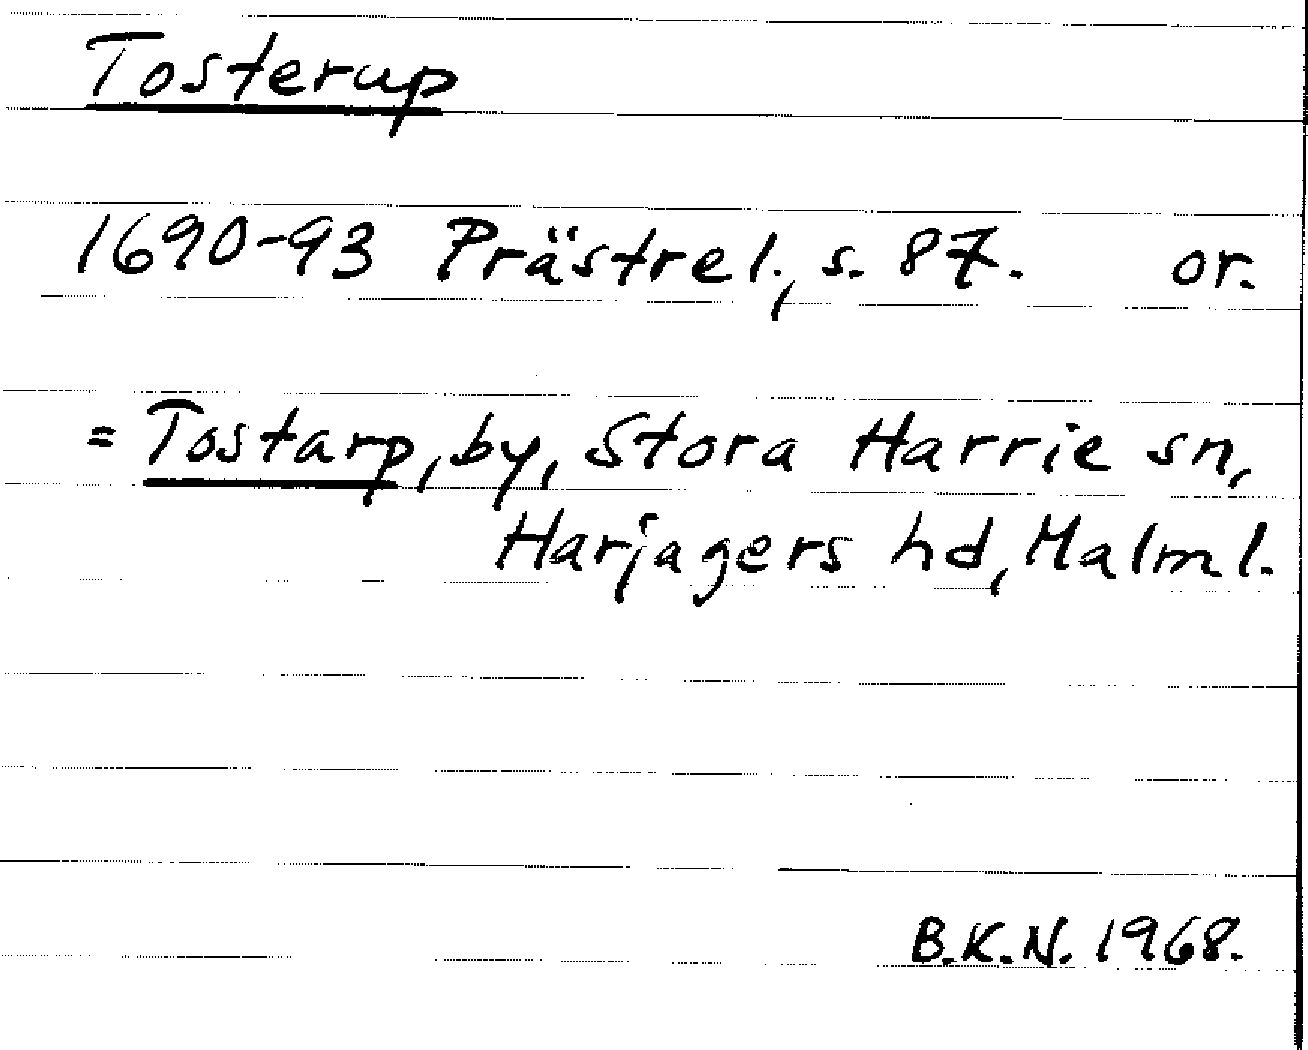 Tosterup
1690-93 Prästrel., s. 87. or.
= Tostarp, by, Stora Harrie sn,
Harjagers hd, Malml.
B.K.N. 1968.